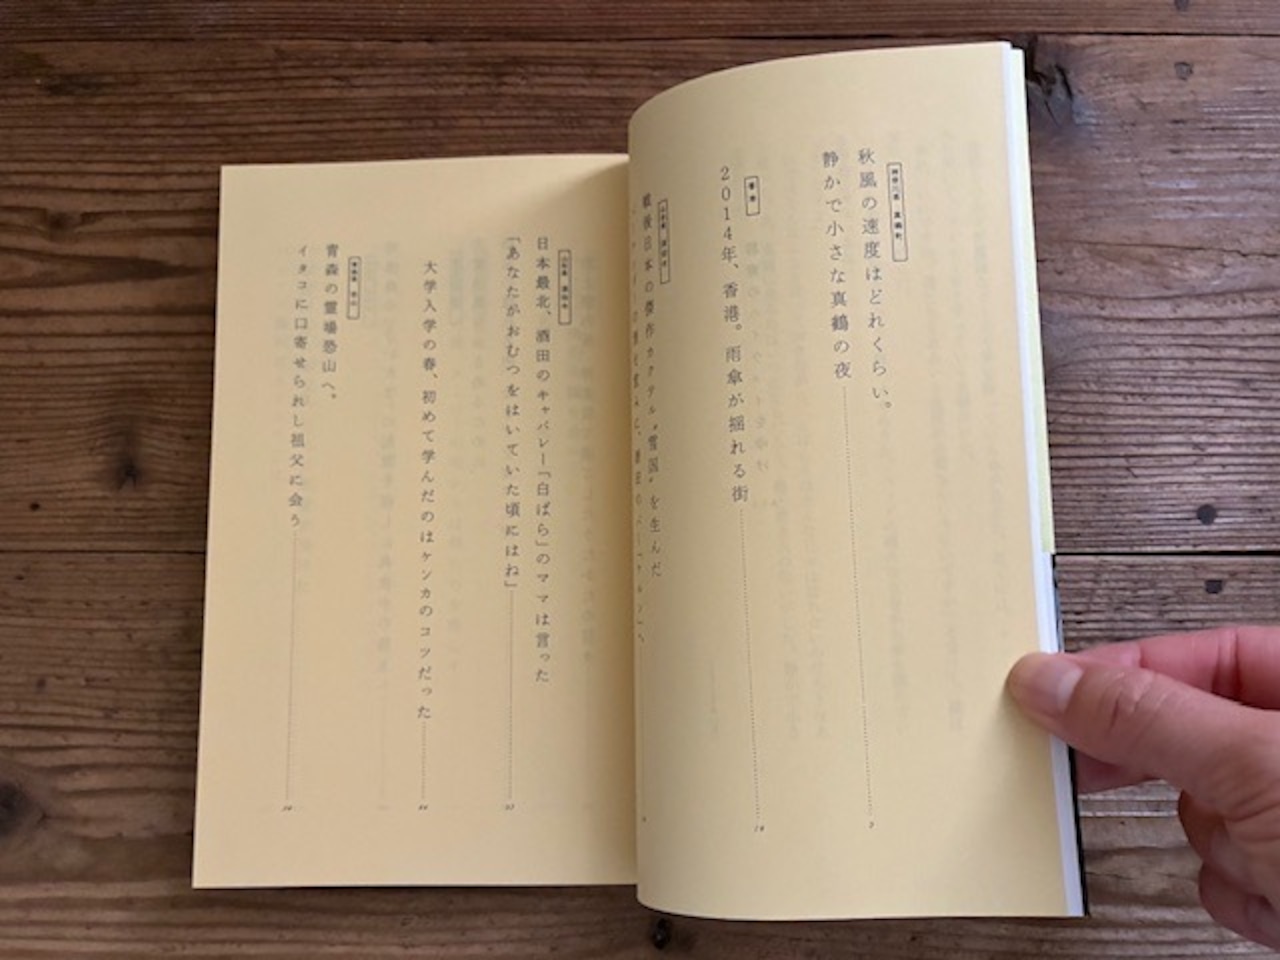 神奈川県 真鶴町
秋風の速度はどれくらい。
静かで小さな真鶴の夜
9
香港
2014年、香港。雨傘が揺れる街
18
山形県 酒田市
戦後日本の傑作カクテル“雪国”を生んだ
山形県 酒田市
日本最北、酒田のキャバレー「白ばら」のママは言った
「あなたがおむつをはいていた頃にはね」
大学入学の春、初めて学んだのはケンカのコツだった
青森県 恐山
青森の霊場恐山へ。
イタコに口寄せられし祖父に会う